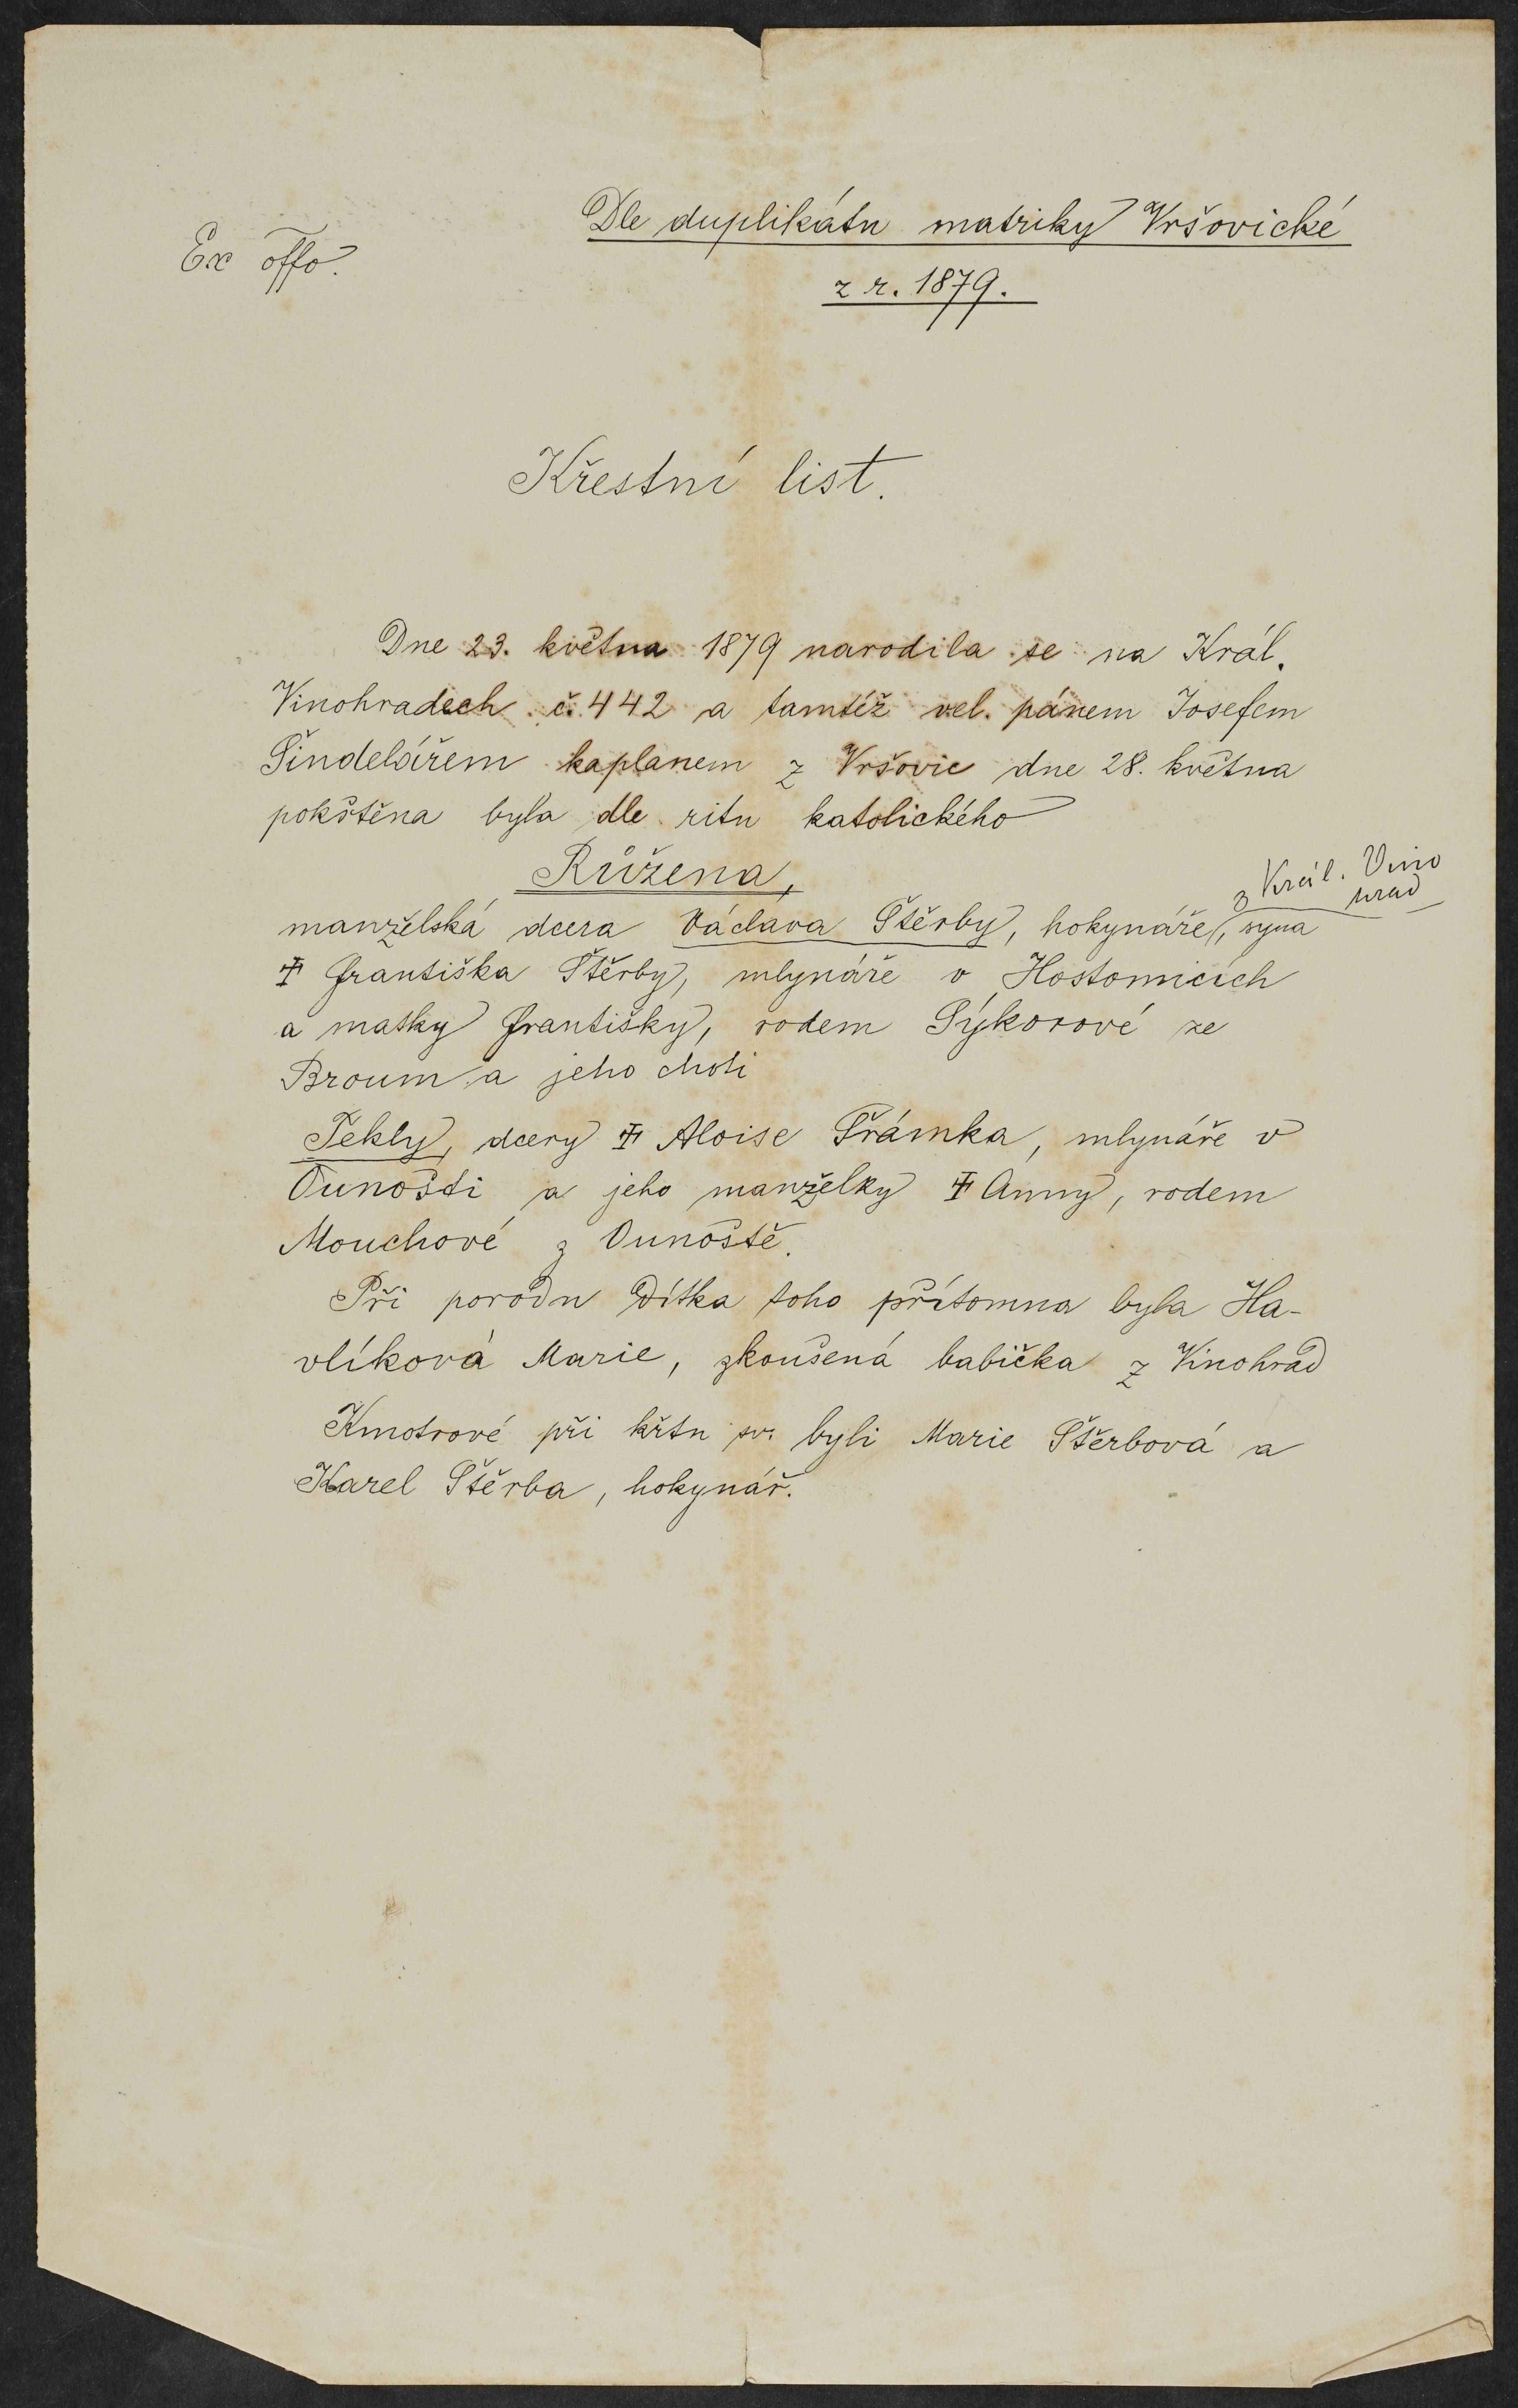 Ex offo.
Dle duplikátu matriky Vršovické
z r. 1879.
Křestní list.
Dne 23. května 1879 narodila se na Král.
Vinohradech č. 442 a tamtéž vel. pánem Josefem
Šindelářem kaplanem z Vršovic dne 28. května
pokřtěna byla dle ritu katolického
Růžena,
z Král. Vino
hrad
manželská dcera Václava Štěrby, hokynáře, syna
‡ Františka Štěrby, mlynáře v Hostomicích
a matky Františky, rodem Sýkorové ze
Broum a jeho choti
Tekly, dcery ‡ Aloise Šrámka, mlynáře v
Ounošti a jeho manželky ‡ Anny, rodem
Mouchové z Ounoště.
Při porodu dítka toho přítomna byla Ha-
vlíková Marie, zkoušená babička z Vinohrad
Kmotrové při křtu sv. byli Marie Štěrbová a
Karel Štěrba, hokynář.